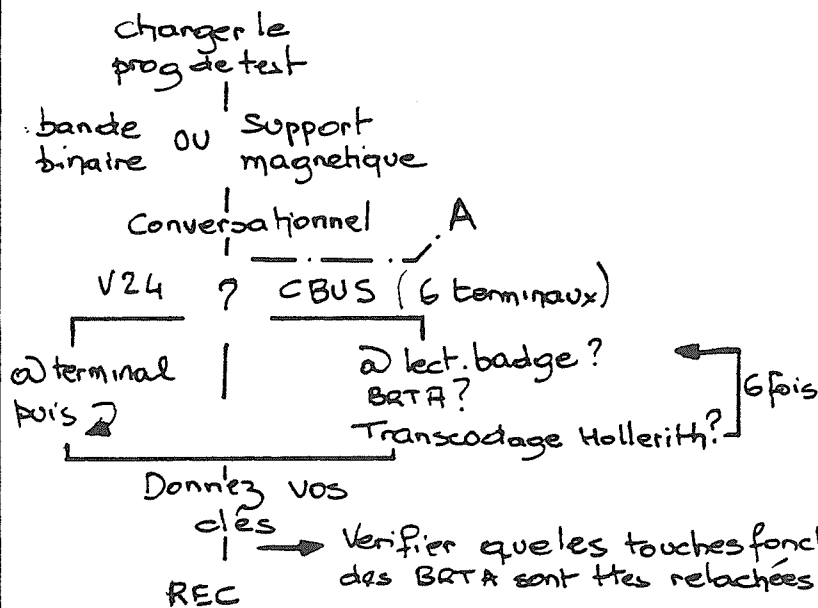 changer le
prog de test
bande
binaire
OU
Support
magnetique
Conversationnel
A
V24 ? CBUS (6 terminaux)
@ terminal
puis
@ lect. badge ?
BRTA ?
Transcodage Hollerith ?
6 fois
Donnez vos
clés
Verifier que les touches fonct
des BRTA sont ttes relachées
REC